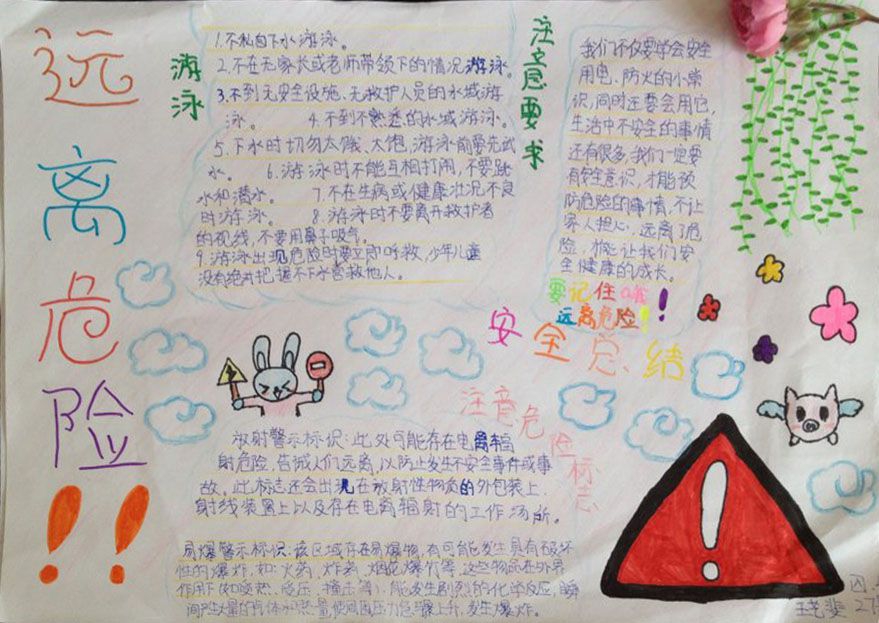 远离危险!!
游泳
注意要求
1.不私自下水游泳。
2.不在无家长或老师带领下的情况游泳。
3.不到无安全设施、无救护人员的水域游
泳。 4.不到不熟悉的水域游泳。
5.下水时切勿太饿、太饱,游泳前要先试
水。 6.游泳时不能互相打闹,不要跳
水和潜水。 7.不在生病或健康状况不良
时游泳。 8.游泳时不要离开救护者
的视线,不要用鼻子吸气。
9.游泳出现危险时要立即呼救,少年儿童
没有绝对把握不下水营救他人。
我们不仅要学会安全
用电、防火的小常
识,同时还要会用它,
生活中不安全的事情
还有很多,我们一定要
有安全意识,才能预
防危险的事情,不让
家人担心,远离了危
险,才能让我们安
全健康的成长。
要记住哦!
远离危险!!
安全总结
注意危险标志
放射警示标识:此处可能存在电离辐
射危险,告诫人们远离,以防止发生不安全事件或事
故。此标志还会出现在放射性物质的外包装上、
射线装置上以及存在电离辐射的工作场所。
易爆警示标识:该区域存在易爆物,有可能发生具有破坏
性的爆炸,如:火药、炸药、烟花爆竹等,这些物品在外界
作用下(如受热、受压、撞击等),能发生剧烈的化学反应,瞬
间产生大量的气体和热量使周围压力急骤上升,发生爆炸。